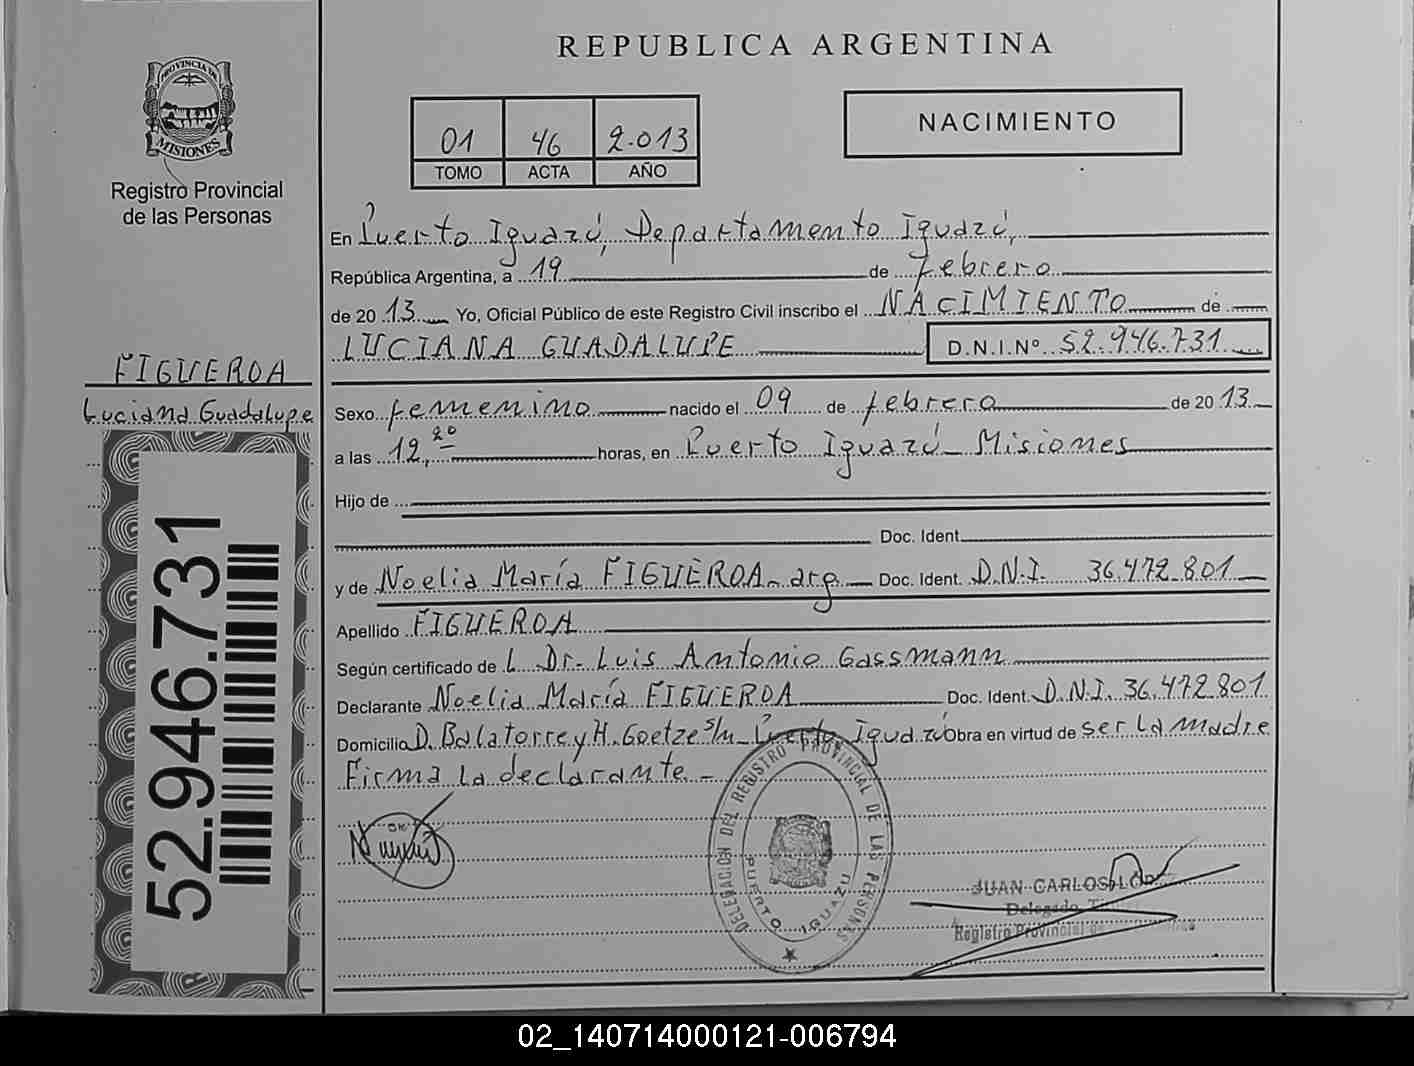 REPUBLICA ARGENTINA
PROVINCIA DE
MISIONES
Registro Provincial
de las Personas
01 46 2.013
TOMO ACTA AÑO
NACIMIENTO
En Puerto Iguazú, Departamento Iguazú,
República Argentina, a 19 de febrero
de 20 13 Yo, Oficial Público de este Registro Civil inscribo el NACIMIENTO de
LUCIANA GUADALUPE D.N.I.Nº 52.946.731
FIGUEROA
Luciana Guadalupe
52.946.731
Sexo femenino nacido el 09 de febrero de 20 13
a las 12,20 horas, en Puerto Iguazú - Misiones
Hijo de
Doc. Ident.
y de Noelia María FIGUEROA - arg. Doc. Ident. D.N.I. 36.472.801
Apellido FIGUEROA
Según certificado de L Dr. Luis Antonio Gassmann
Declarante Noelia María FIGUEROA Doc. Ident. D.N.I. 36.472.801
Domicilio D. Balatorre y H. Goetze s/n - Puerto Iguazú Obra en virtud de ser la madre
Firma la declarante -
DELEGACION DEL REGISTRO PROVINCIAL DE LAS PERSONAS
PUERTO IGUAZU
JUAN CARLOS
Delegado
Registro Provincial de
02_140714000121-006794